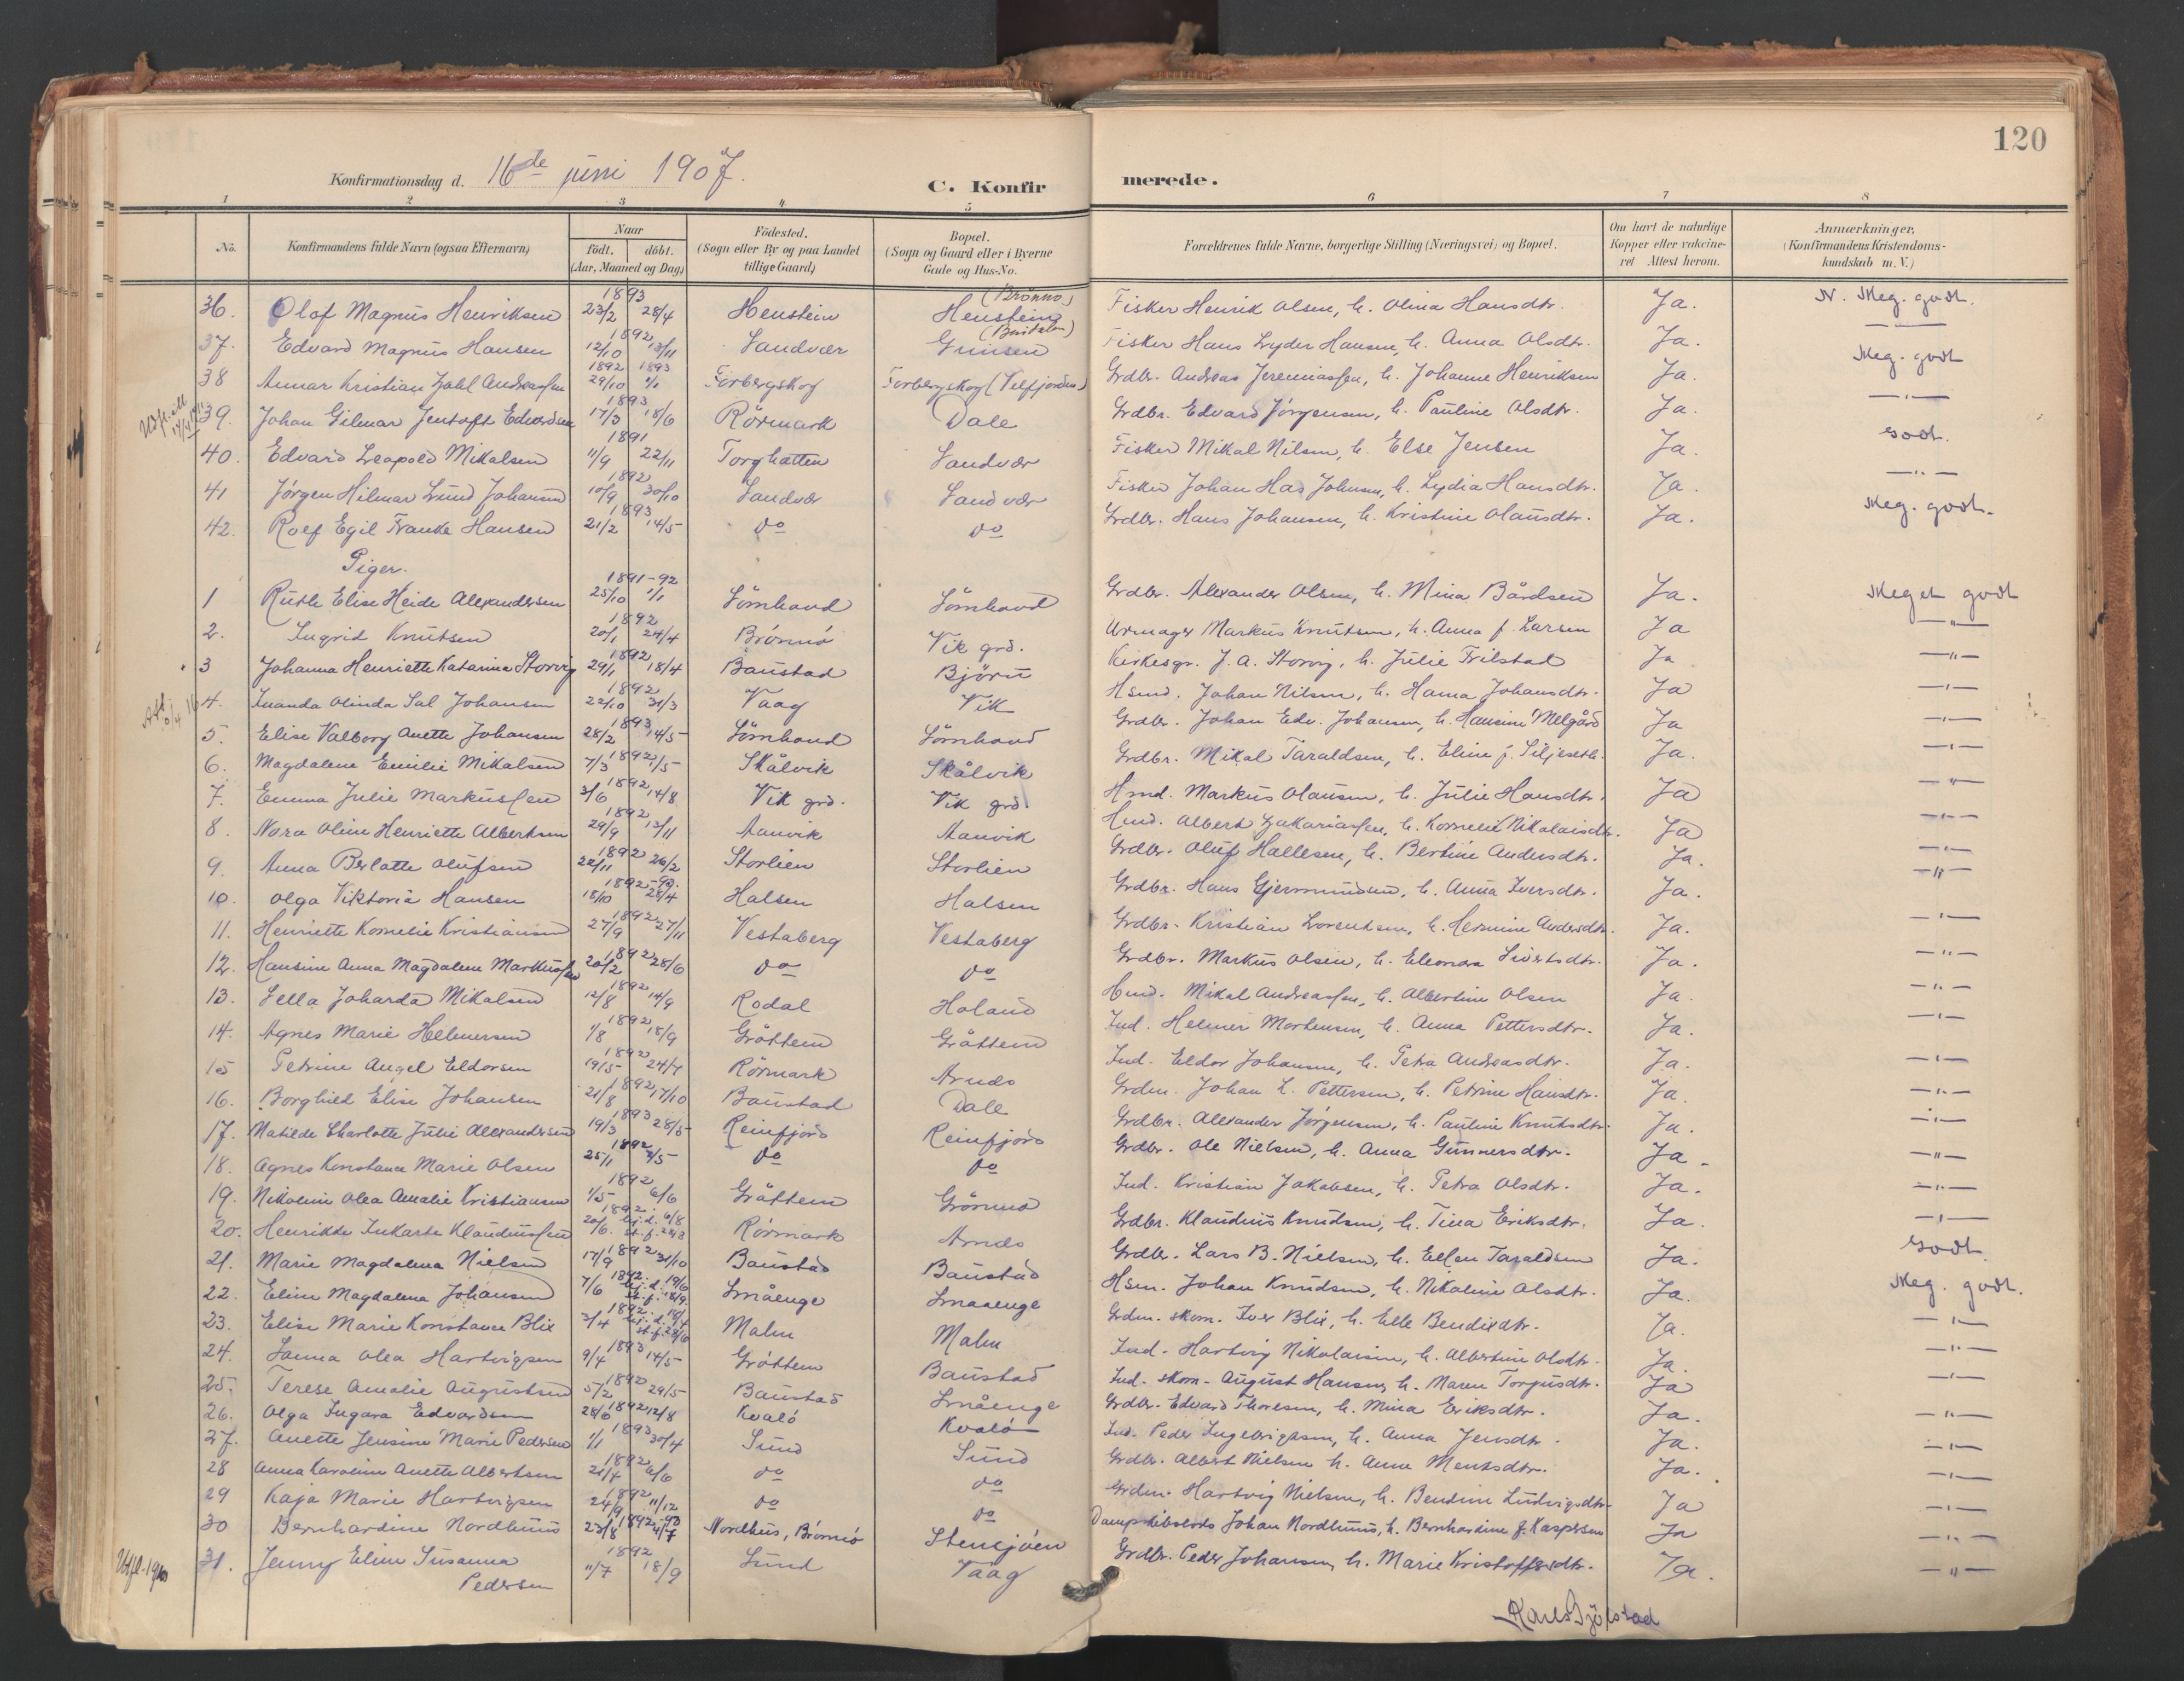 120
Konfirmationsdag d. 16de juni 1907.
C. Konfirmerede.
1 2 3 4 5 6 7 8
No. Konfirmandens fulde Navn (ogsaa Efternavn) Naar födt. döbt. (Aar, Maaned og Dag) Födested. (Sogn eller By og paa Landet tillige Gaard) Bopæl. (Sogn og Gaard eller i Byerne Gade og Hus-No. Forældrenes fulde Navne, borgerlige Stilling (Næringsvei) og Bopæl. Om havt de naturlige Kopper eller vakcineret Attest herom. Anmærkninger. (Konfirmandens Kristendomskundskab m. V.)
36. Olaf Magnus Henriksen 1893 23/2 28/4 Henstein Henstein (Brönnö) Fisker Henrik Olsen, h. Olina Hansdtr. Ja. N. Meg. godt.
37. Edvard Magnus Hansen 1892 12/10 13/11 Sandvær Fisker Hans Lyder Hansen, h. Anna Olsdtr. Ja. — " —
38 Annar Kristian Zahl Andreassen 1892 1893 29/10 1/1 Forbergskog Forbergskog (Velfjorden) Grdbr. Andreas Jeremiassen, h. Johanne Henriksen Ja. Meg. godt
39. Johan Gilmar Jentoft Edvardsen 1893 17/3 18/6 Rörmark Dale Grdbr. Edvard Jörgensen, h. Pauline Olsdtr. Ja. — " —
40. Edvard Leopold Mikalsen 1891 11/9 22/11 Torghatten Sandvær Fisker Mikal Nilsen, h. Else Jensen Ja. Godt.
41 Jørgen Hilmar Lund Johansen 1892 10/9 30/10 Sandvær Sandvær Fisker Johan Has Johnsen, h. Lydia Hansdtr. Ja. — " —
42. Rolf Egil Franke Hansen 1893 21/2 14/5 do do Grdbr. Hans Johansen, h. Kristine Olausdtr. Ja. Meg. godt.
Piger.
1 Ruth Elise Heide Alexandersen 1891-92 25/10 1/1 Sömhovd Sömhovd Grdbr. Alexander Olsen, h. Mina Bårdsen Ja. Meget godt
2. Ingrid Knutsen 1892 20/1 24/4 Brönnö Vik grd. Urmager Markus Knutsen, h. Anna f. Larsen Ja — " —
3 Johanna Henriette Katarina Storvig 1892 29/1 18/4 Baustad Björn Kirkesgr. J. A. Storvig, h. Julie Trilstad Ja — " —
4. Inanda Olinda Sal Johansen 1892 22/10 31/3 Vaag Vik Hsmd. Johan Nilsen, h. Hanna Johansdtr. Ja — " —
5. Elise Valborg Anette Johansen 1893 28/2 14/5 Sömhovd Sömhovd Grdbr. Johan Edv. Johansen, h. Hansine Melgård Ja — " —
6. Magdalene Emilie Mikalsen 1892 7/3 Skålvik Skålvik Grdbr. Mikal Taraldsen, h. Eline f. Siljeseth. Ja. — " —
7. Emma Julie Markussen 1892 3/6 14/8 Vik grd. Vik grd. Hmd. Markus Olausen, h. Julie Hansdtr. Ja — " —
8. Nora Oline Henriette Albertsen 1892 29/9 13/11 Aanvik Aanvik Hmd. Albert Zakariassen, h. Kornelie Nikolaisdtr. Ja — " —
9. Anna Berlatte Olufsen 1892 22/11 26/2 Storlien Storlien Grdbr. Oluf Hallesen, h. Bertine Andersdtr. Ja. — " —
10. Olga Viktoria Hansen 1892-93. 18/10 28/4 Halsen Halsen Grdbr. Hans Gjermundsen, h. Anna Iversdtr. Ja. — " —
11. Henriette Kornelie Kristiansen 1892 27/9 27/11 Vestaberg Vestaberg Grdbr. Kristian Lorentsen, h. Hermine Andersdtr. Ja. — " —
12. Hansine Anna Magdalene Markussen 1892 20/2 28/6 do do Grdbr. Markus Olsen, h. Eleonora Sivertsdtr. Ja. — " —
13. Sella Joharda Mikalsen 1892 12/8 14/9 Rodal Holand Hmd. Mikal Andreassen, h. Albertine Olsen Ja. — " —
14. Agnes Marie Helmersen 1892 1/8 18/9 Gråttem Gråttem Ind. Helmer Mortensen, h. Anna Pettersdtr. Ja. — " —
15 Petrine Angel Eldorsen 1892 19/5 24/7 Rörmark Arnds Ind. Eldor Johansen, h. Petra Andreasdtr. Ja. — " —
16. Borghild Elise Johansen 1892 21/8 17/10 Baustad Dale Grdm. Johan L. Pettersen, h. Petrine Hansdtr. Ja. — " —
17. Matilde Charlotte Julie Alexandersen 1893 19/3 28/5 Reinfjord Reinfjord Grdbr. Alexander Jörgensen, h. Pauline Knutsdtr. Ja. — " —
18. Agnes Konstance Marie Olsen 1892 25/1 do do Grdbr. Ole Nielsen, h. Anna Gunnersdtr. Ja. — " —
19. Nikoline Olea Amalie Kristiansen 1892 1/5 6/6 Gråttem Grönmo Ind. Kristian Jakobsen, h. Petra Olsdtr. Ja. — " —
20. Henrikke Inkarte Klaudiussen 1892 20/6. hj. d. 6/8 st. f. Rörmark Arnds Grdbr. Klaudius Knudsen, h. Tina Eriksdtr. Ja. — " —
21. Marie Magdalena Nielsen 1892 17/9 31/10 Baustad Baustad Grdbr. Lars B. Nielsen, h. Ellen Taraldsen Ja. Godt
22. Eline Magdalena Johansen 1892. 7/6 hj. d. 19/6 st. f. 18/9. Småenge Smaaenge Hsm. Johan Knudsen, h. Nikoline Olsdtr. Ja. Meg. godt.
23. Elise Marie Konstance Blix 1892. 3/4 hj. d. 14/4 st. f. 28/6 Malm Malm Grdm. skom. Iver Blix, h. Elle Bendixdtr. Ja. — " —
24. Janna Olea Hartvigsen 1893 9/4 14/5 Gröttem Baustad Ind. Hartvig Nikolaisen, h. Albertine Olsdtr. Ja. — " —
25. Terese Amalie Augustsen 1892 5/2 29/5 Baustad Småenge Ind. skom. August Hansen, h. Maren Torgusdtr. Ja — " —
26. Olga Ingara Edvardsen 1892 28/6 12/8 Kvalö Kvalö Grdbr. Edvard Thoresen, h. Mina Eriksdtr. Ja. — " —
27. Anette Jensine Marie Pedersen 1893 1/1 30/4 Sund Sund Ind. Peder Ingebrigtsen, h. Anna Jensdtr. Ja. — " —
28 Anna Karoline Anette Albertsen 1892 21/4 6/6 do do Grdbr. Albert Nielsen h. Anne Mentsdtr. Ja. — " —
29 Kaja Marie Hartvigsen 1892 24/9 11/12 do do Grdm. Hartvig Nielsen, h. Bendine Ludvigsdtr. Ja — " —
30 Bernhardine Nordhuus 1892-93 23/8 4/7 Nordhus, Brönnö Stensjöen Dampskibsexp. Johan Nordhuus, h. Bernhardine f. Kaspersen Ja — " —
31. Jenny Eline Susanna Pedersen 1892 11/7 18/9 Sund Vaag Grdbr. Peder Johansen, h. Marie Kristoffersdtr. Ja. — " —